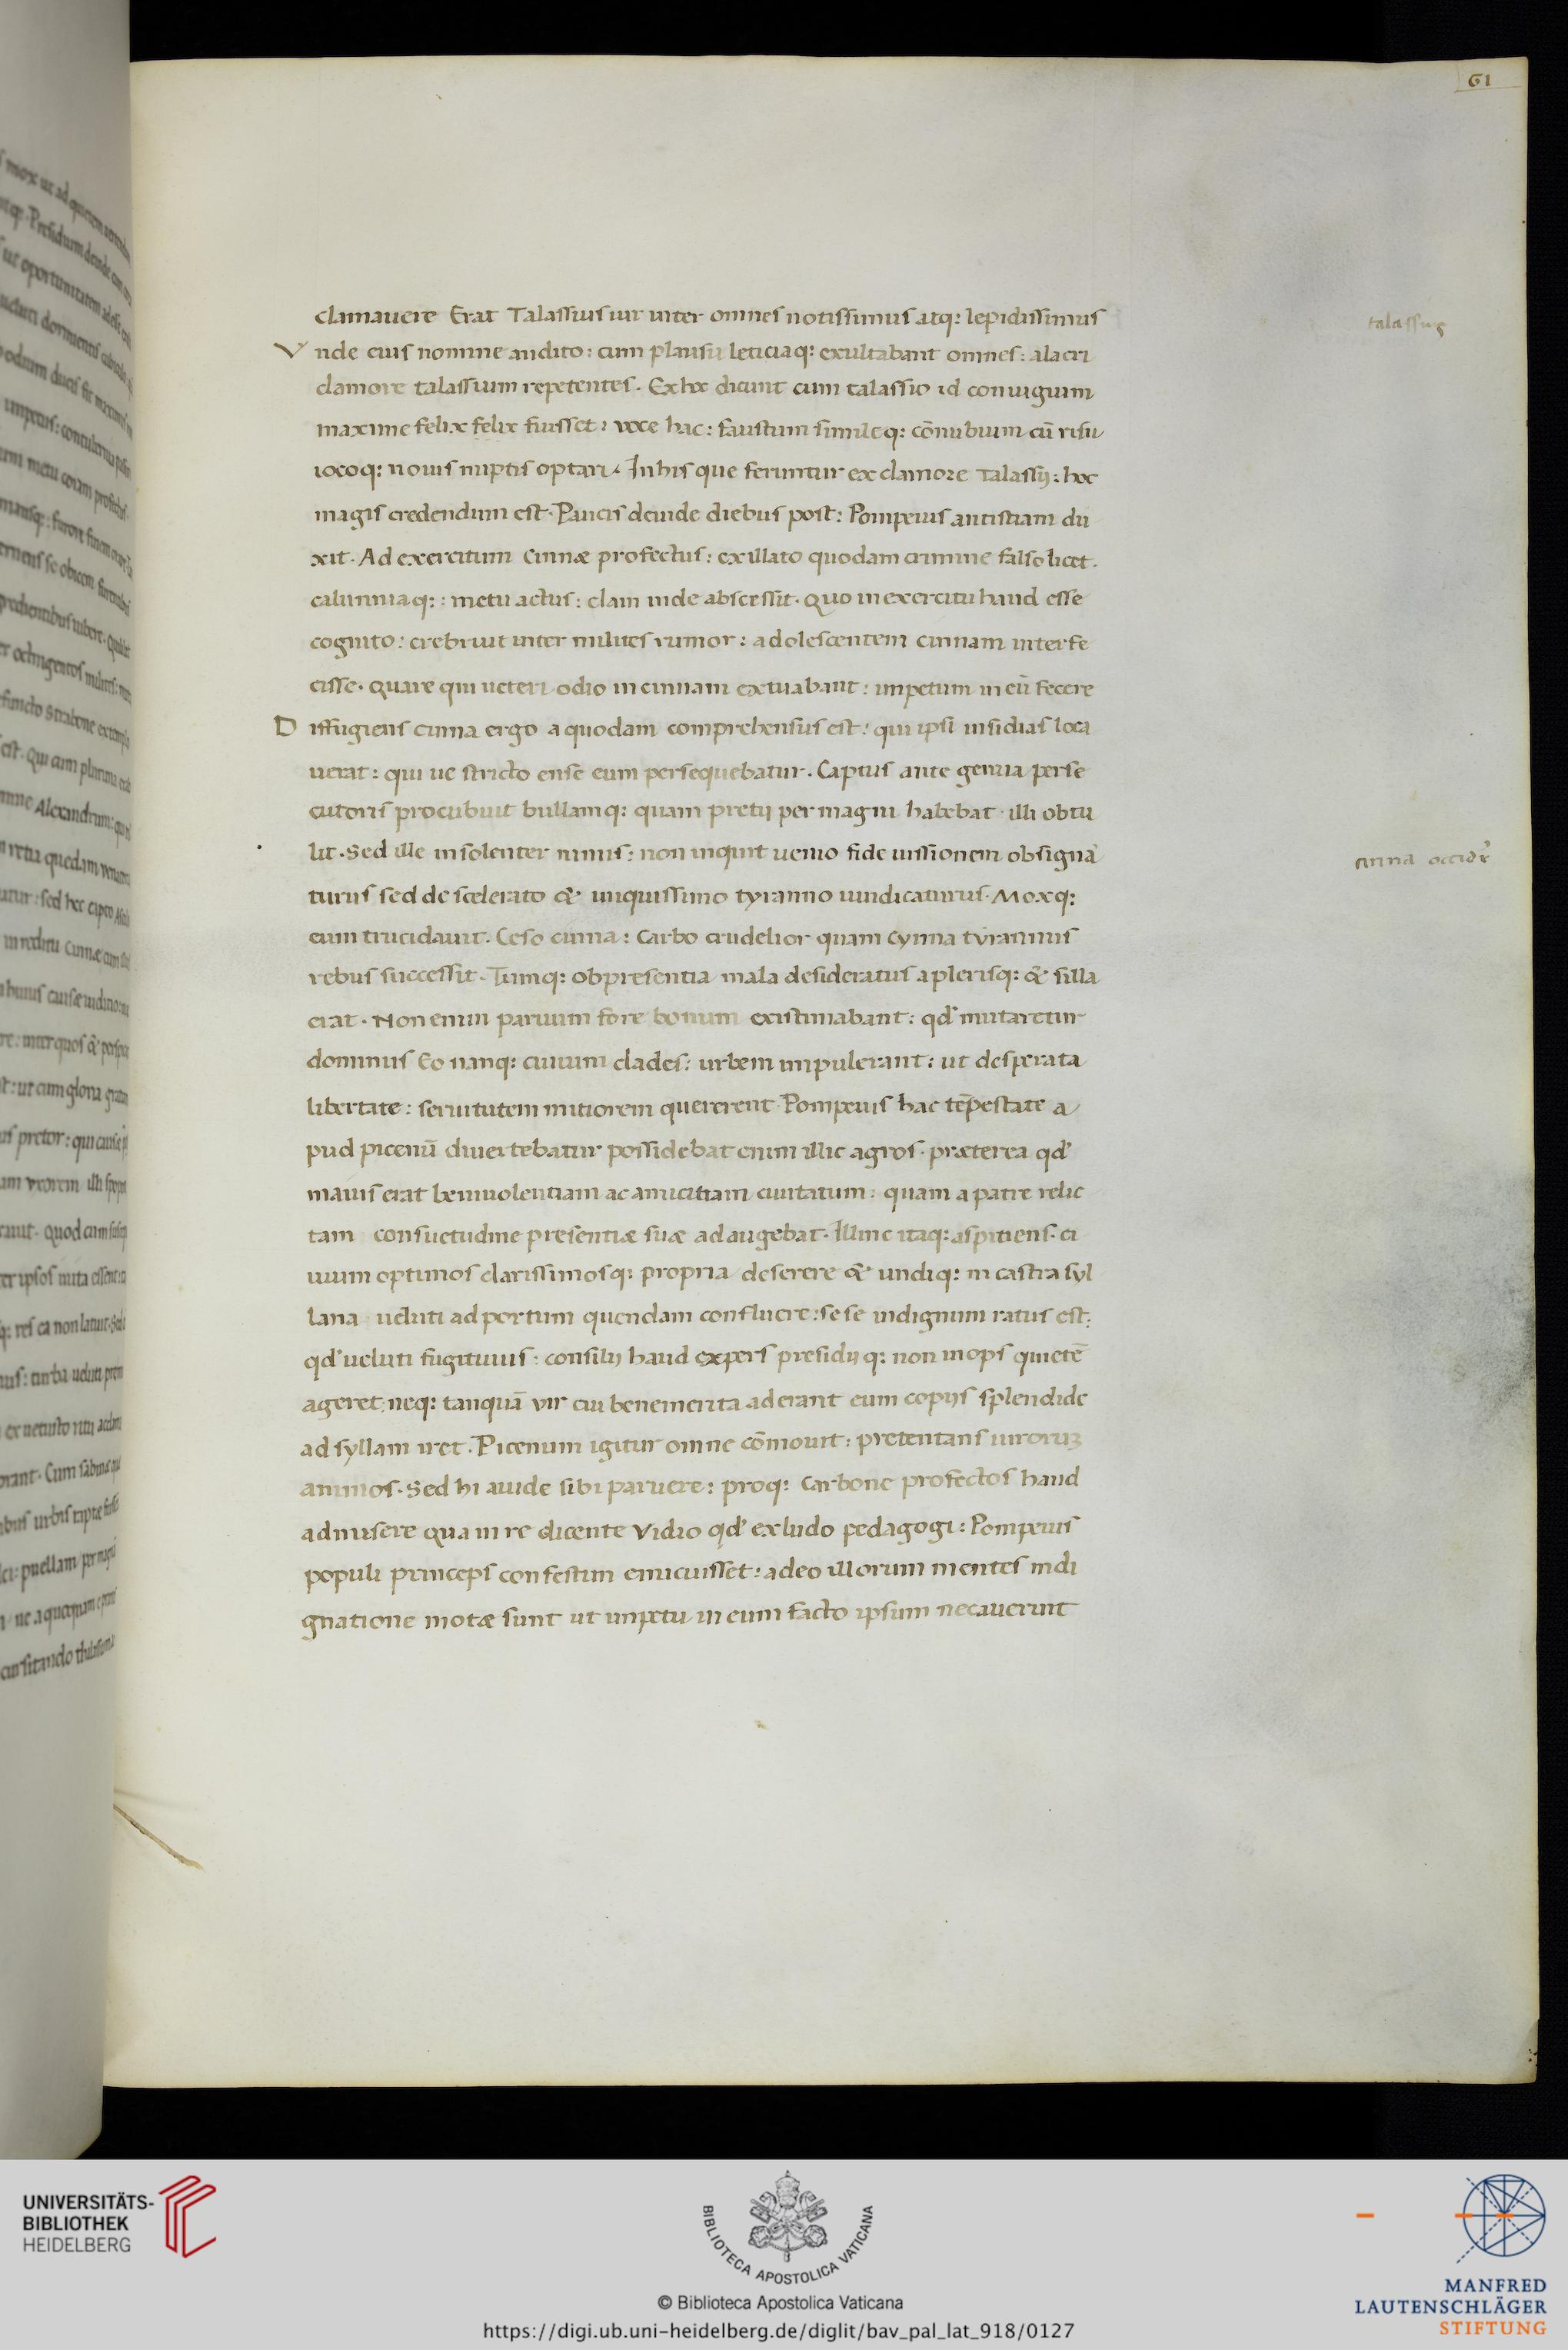 61
clamauere Erat Talassius uir inter omnes notissimus atq: lepidissimus
talassius
Vnde eius nomine audito: cum plausu leticiaq: exultabant omnes: alacri
clamore talassium repetentes. Ex hoc dicunt cum talassio id coniugium
maxime felix felix fuisset: voce hac: faustum simileq: cōnubium cū risu
iocoq: nouis nuptis optari. In his que feruntur ex clamore Talassij: hoc
magis credendum est. Paucis deinde diebus post: Pompeius antistiam du
xit. Ad exercitum Cinnæ profectus: ex illato quodam crimine falso licet.
calumniaq:: metu actus: clam inde abscessit. Quo in exercitu haud esse
cognito: crebruit inter milites rumor: adolescentem cinnam interfe
cisse. Quare qui ueteri odio in cinnam extuabant: impetum in eū fecere
Diffugiens cinna ergo a quodam comprehensus est: qui ipsi insidias loca
uerat: qui ue stricto ense eum persequebatur. Captus ante genua perse
cutoris procubuit bullamq: quam pretij per magni habebat illi obtu
lit. Sed ille insolenter nimis: non inquit uenio fide iussionem obsigna
cinna occidit̃
turus sed de scelerato & iniquissimo tyranno uindicaturus. Moxq:
eum trucidauit. Ceso cinna: Carbo crudelior quam Cynna tyrannus
rebus successit. Tumq: ob presentia mala desideratus a plerisq: & silla
erat. Non enim paruum fore bonum existimabant: qd' mutaretur
dominus Eo nanq: ciuium clades: urbem impulerant: ut desperata
libertate: seruitutem mitiorem quererent Pompeius hac tēpestate a
pud picenū diuertebatur possidebat enim illic agros. præterea qd'
mauis erat beniuolentiam ac amicitiam ciuitatum: quam a patre relic
tam consuetudine presentiæ suæ adaugebat. Illinc itaq: aspitiens. ci
uium optimos clarissimosq: propria deserere & undiq: in castra syl
lana ueluti ad portum quendam confluere: sese indignum ratus est:
qd' ueluti fugitiuus: consilij haud expers presidijq: non inops quietē
ageret: neq: tanquā vir cui benemerita aderant cum copijs splendide
ad syllam iret. Picenum igitur omne cōmouit: pretentans uirorum
animos. Sed hi auide sibi paruere: proq: Carbone profectos haud
admisere qua in re dicente Vidio qd' ex ludo pedagogi: Pompeius
populi princeps confestim emicuisset: adeo illorum mentes indi
gnatione motæ sunt ut impetu in eum facto ipsum necauerint
UNIVERSITÄTS-
BIBLIOTHEK
HEIDELBERG
BIBLIOTECA APOSTOLICA VATICANA
© Biblioteca Apostolica Vaticana
https://digi.ub.uni-heidelberg.de/diglit/bav_pal_lat_918/0127
MANFRED
LAUTENSCHLÄGER
STIFTUNG